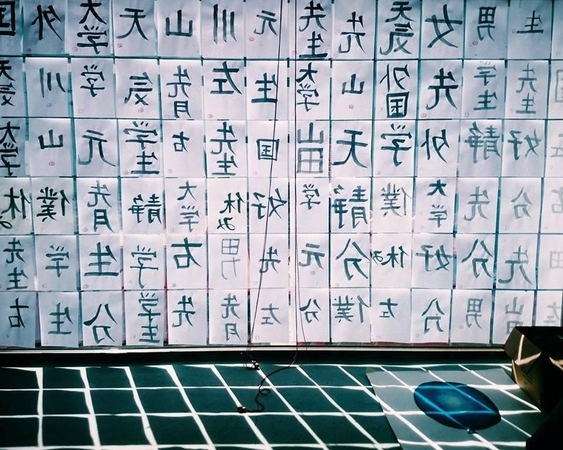 国 外 大学 天 山 川 元 先生 先 天気 女 男 生
天気 川 学 気 先月 左 生 大学 山 外国 先 学生
大学 山 元 学生 右 先生 国 山田 天 学 外 静 好
休み 僕 先月 静 大学 休み 好 学 静 僕 大学 先 分
先生 学 生 学 右 男 先 元 分 休み 好 分 先
右 生 分 学生 先 先月 左 分 僕 左 分 男 山田